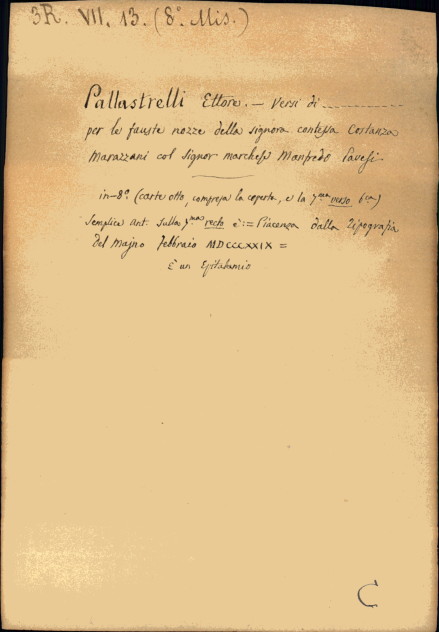 3R. VII. 13. (8.° Mis.)
Pallastrelli Ettore. — Versi di
per le fauste nozze della signora contessa Costanza
Marazzani col Signor marchese Manfredo Pavesi.
in-8.° (carte otto, compresa la coperta, e la 7.ma verso b.ca)
Semplice ant. sulla 7.ma recto è := Piacenza dalla Tipografia
del Majno Febbraio MDCCCXXIX =
È un Epitalamio
C